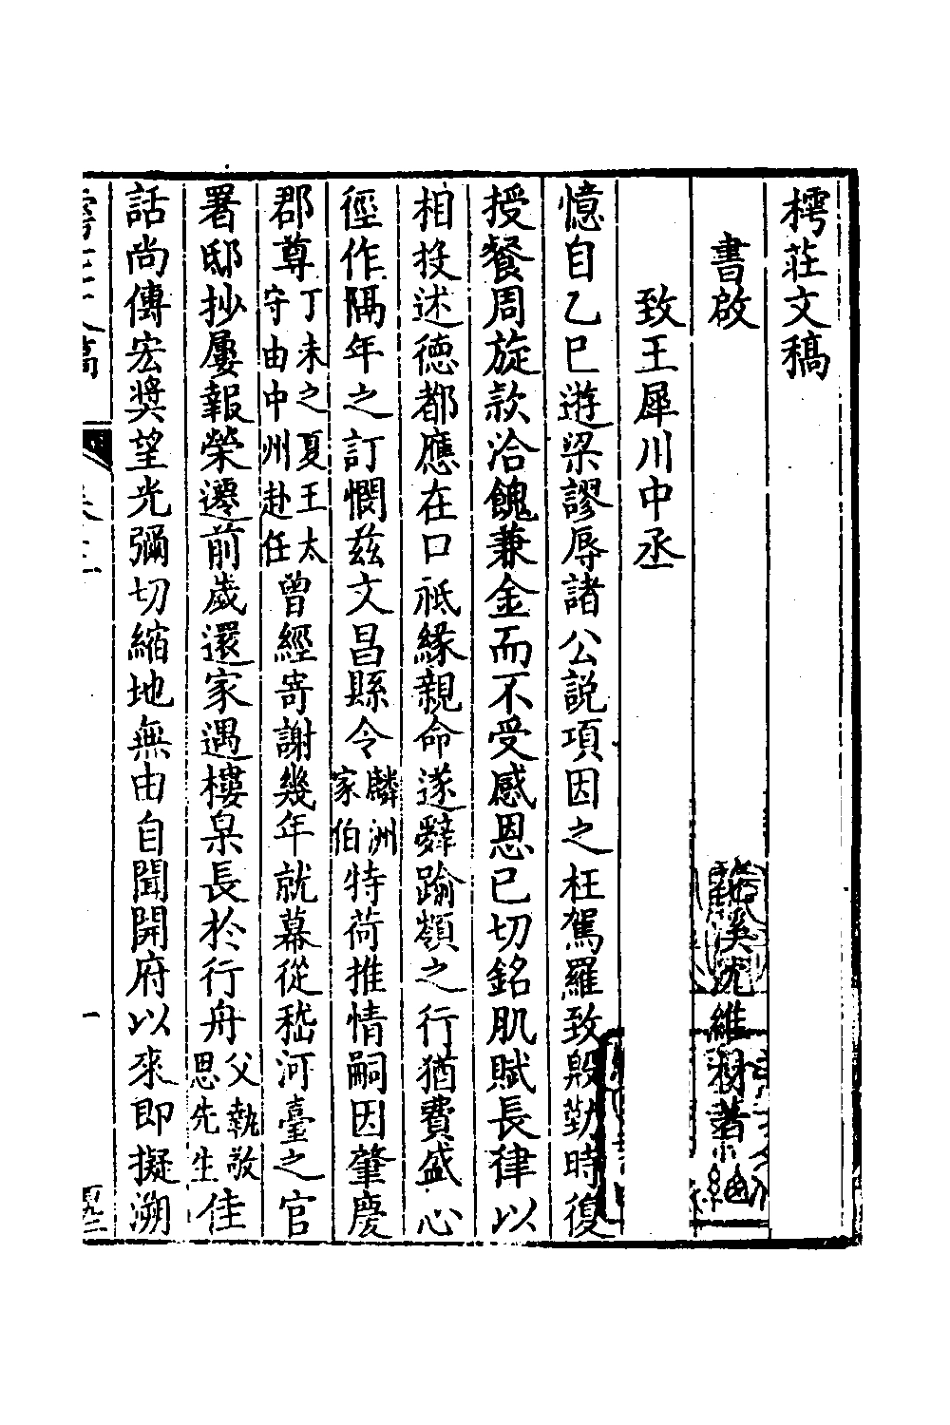 樗莊文稿
書啟
溪沈維材著
致王犀川中丞
憶自乙巳遊梁謬辱諸公說項因之枉駕羅致殷勤時復
授餐周旋款洽餽兼金而不受感恩已切銘肌賦長律以
相投述德都應在口祇緣親命遂辭踰嶺之行猶費盛心
徑作隔年之訂憫茲文昌縣令麟洲家伯特荷推情嗣因肇慶
郡尊丁未之夏王太守由中州赴任曾經寄謝幾年就幕從嵇河臺之官
署邸抄屢報榮遷前歲還家遇樓臬長於行舟父執敬思先生佳
話尚傳宏獎望光彌切縮地無由自聞開府以來即擬溯